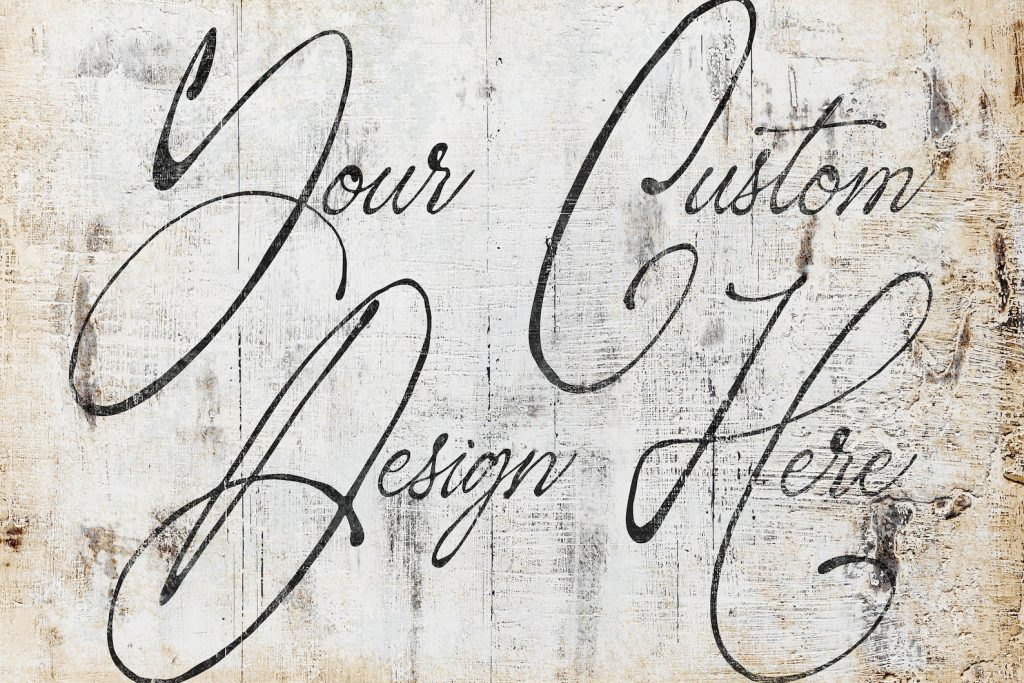 Your Custom
Design Here